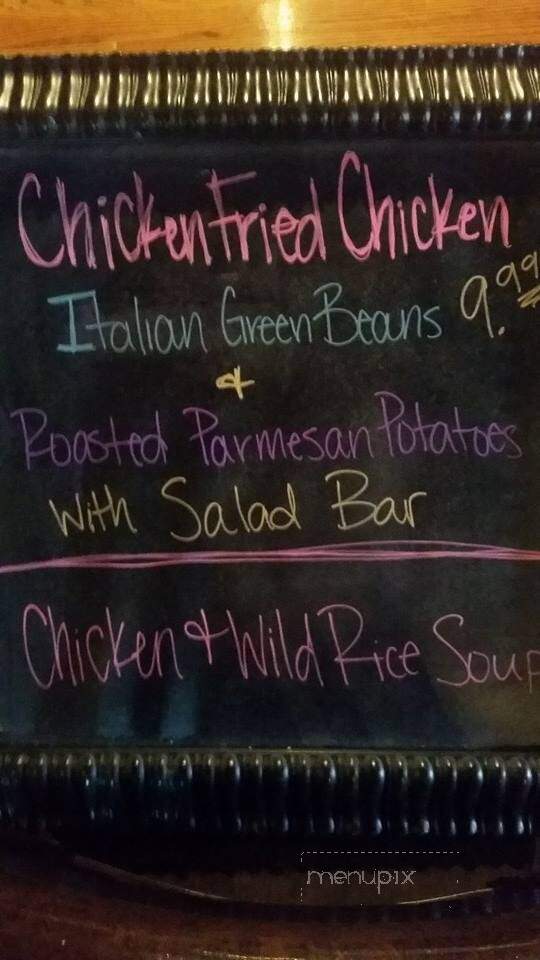 Chicken Fried Chicken
Italian Green Beans 9.99
&
Roasted Parmesan Potatoes
With Salad Bar
Chicken & Wild Rice Soup
menupix